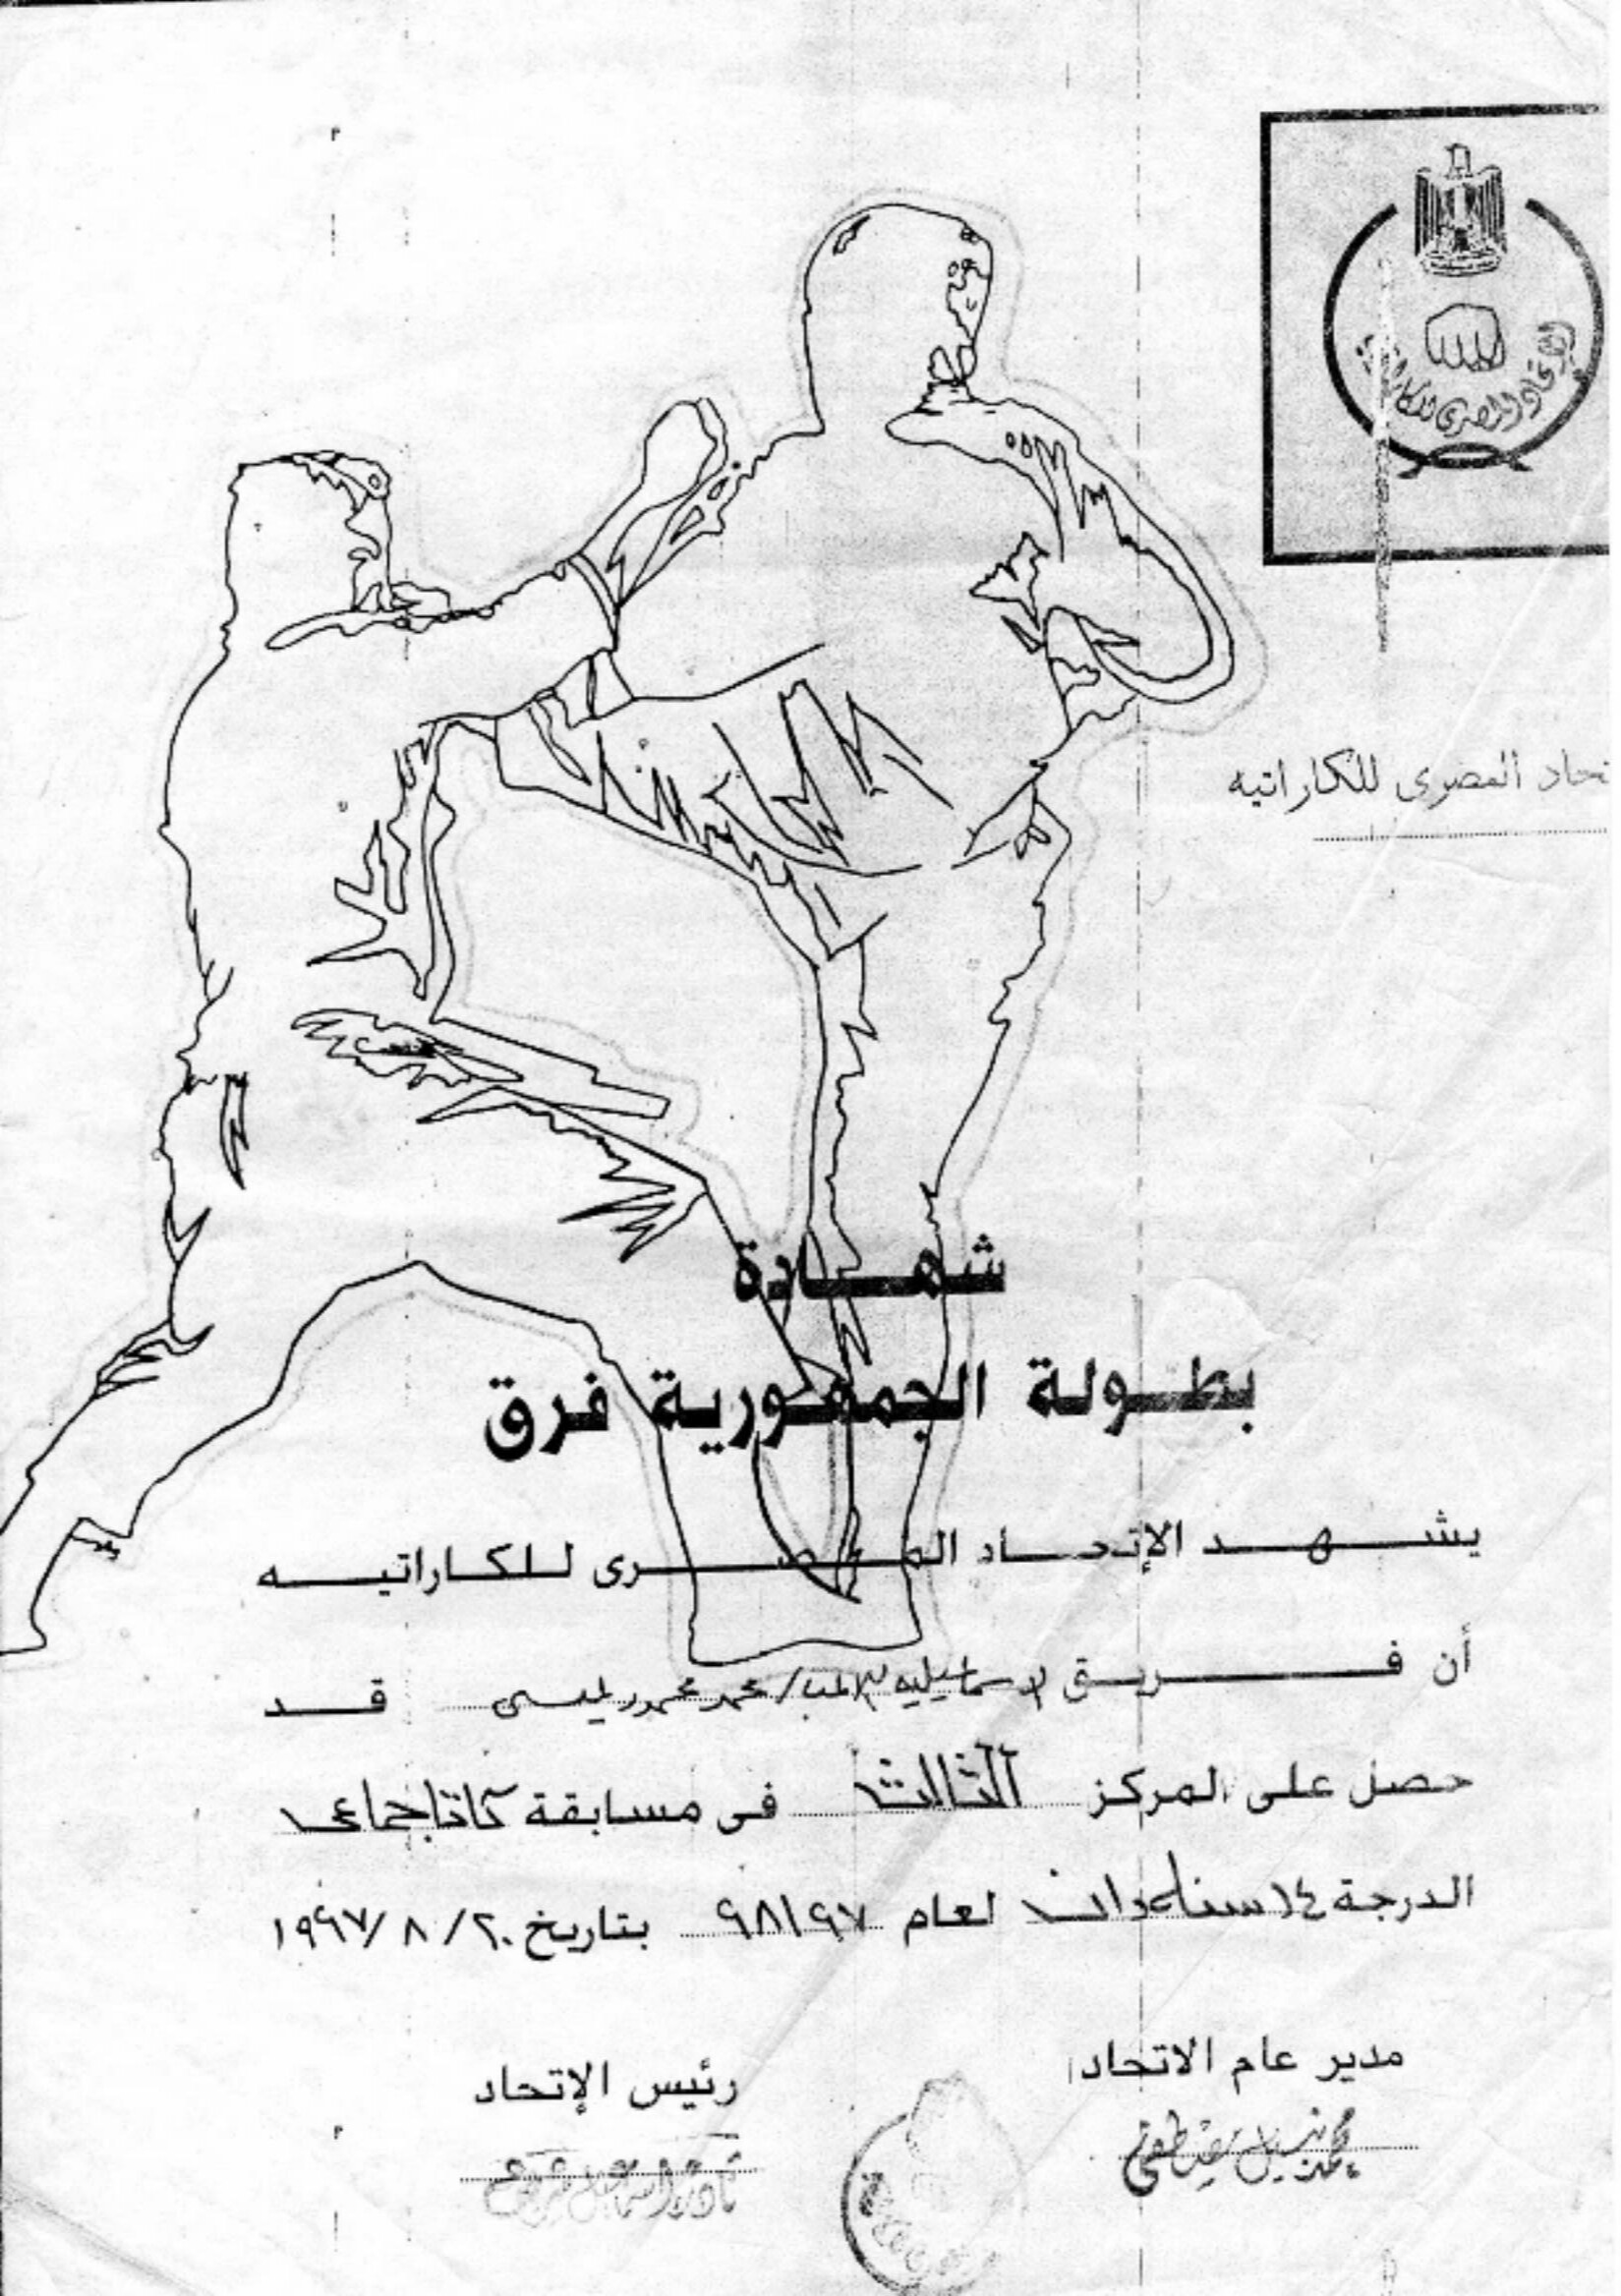 الاتحاد المصرى للكاراتيه
تحاد المصرى للكاراتيه
شهادة
بطولة الجمهورية فرق
يشهد الإتحاد المصرى للكاراتيه
أن فريق الاسماعيلية / محمد محمود قد
حصل على المركز الثالث فى مسابقة كاتا جماعى
الدرجة ١٤ سنة لعام ٩٨/٩٧ بتاريخ ٢٠/ ٨ /١٩٩٧
مدير عام الاتحاد
رئيس الإتحاد
محمد نبيل مصطفى